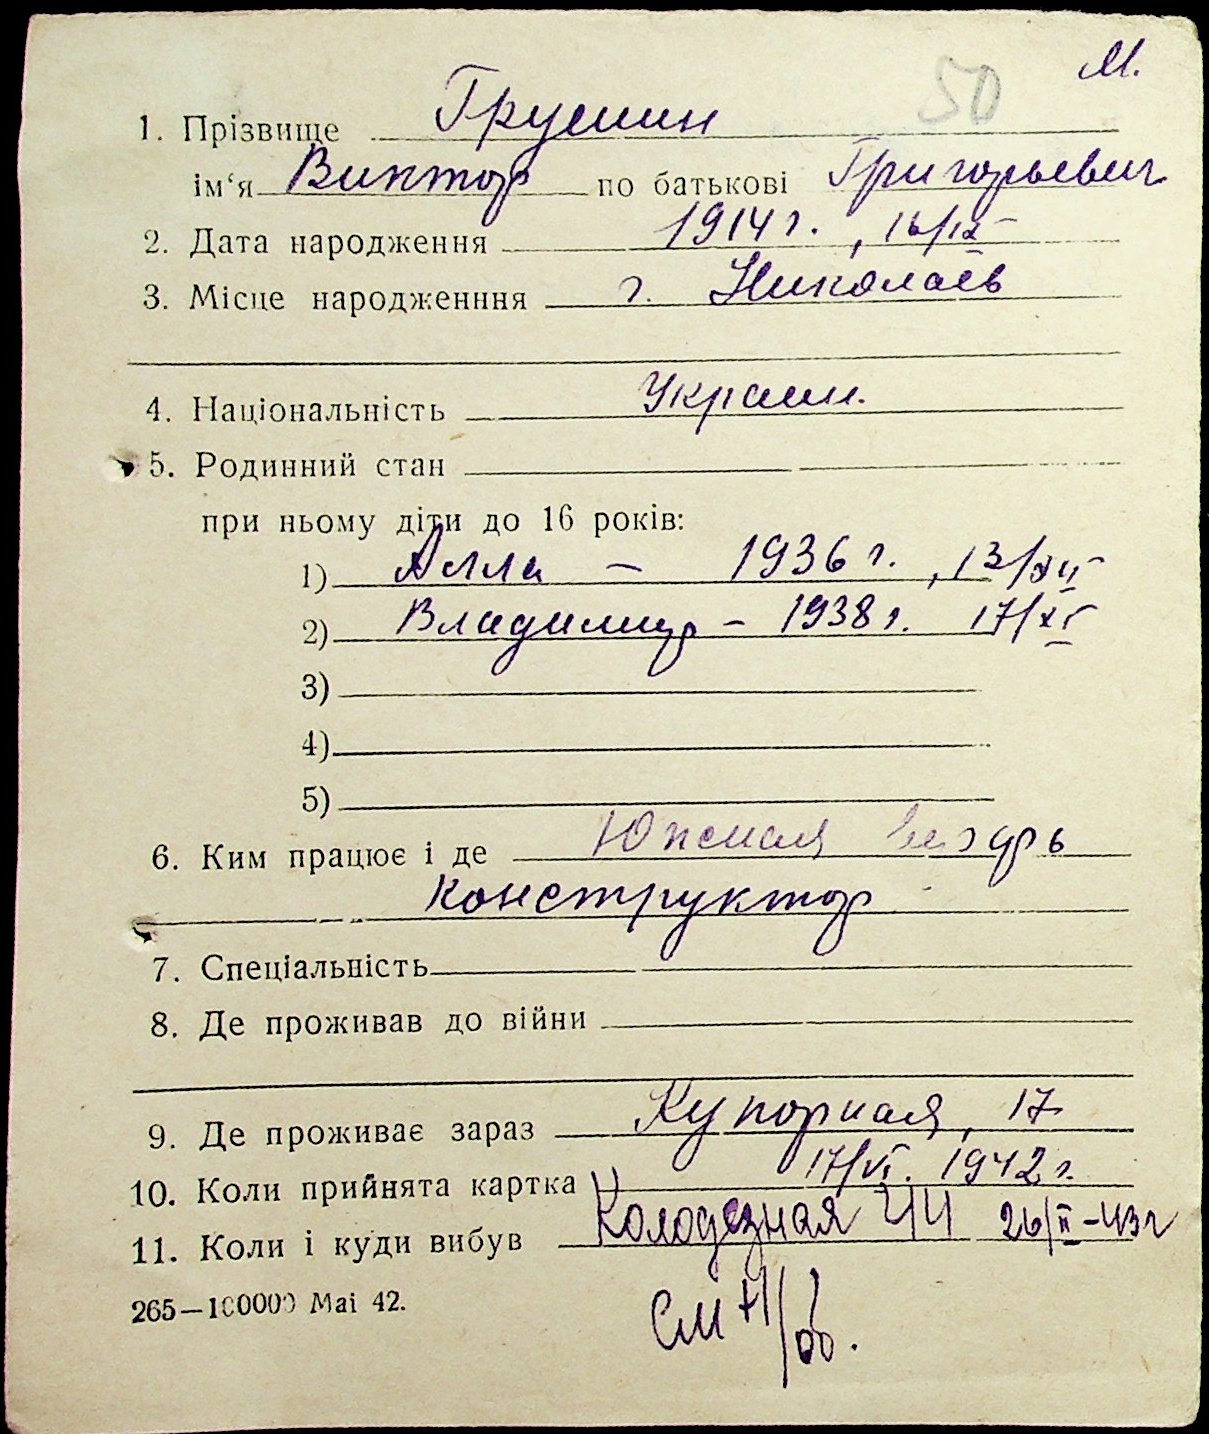 М.
50
1. Прізвище Грушин
ім‘я Виктор по батькові Григорьевич
2. Дата народження 1914 г., 16/IX
3. Місце народженння г. Николаев
4. Національність Украин.
5. Родинний стан
при ньому діти до 16 років:
1) Алла – 1936 г., 13/XII
2) Владимир – 1938 г. 17/XI
3)
4)
5)
6. Ким працює і де Южная верфь
конструктор
7. Спеціальність
8. Де проживав до війни
9. Де проживає зараз Купорная, 17
10. Коли прийнята картка 17/VI. 1942 г.
11. Коли і куди вибув Колодезная 44 26/II-43г
265—100000 Mai 42.
См н/об.